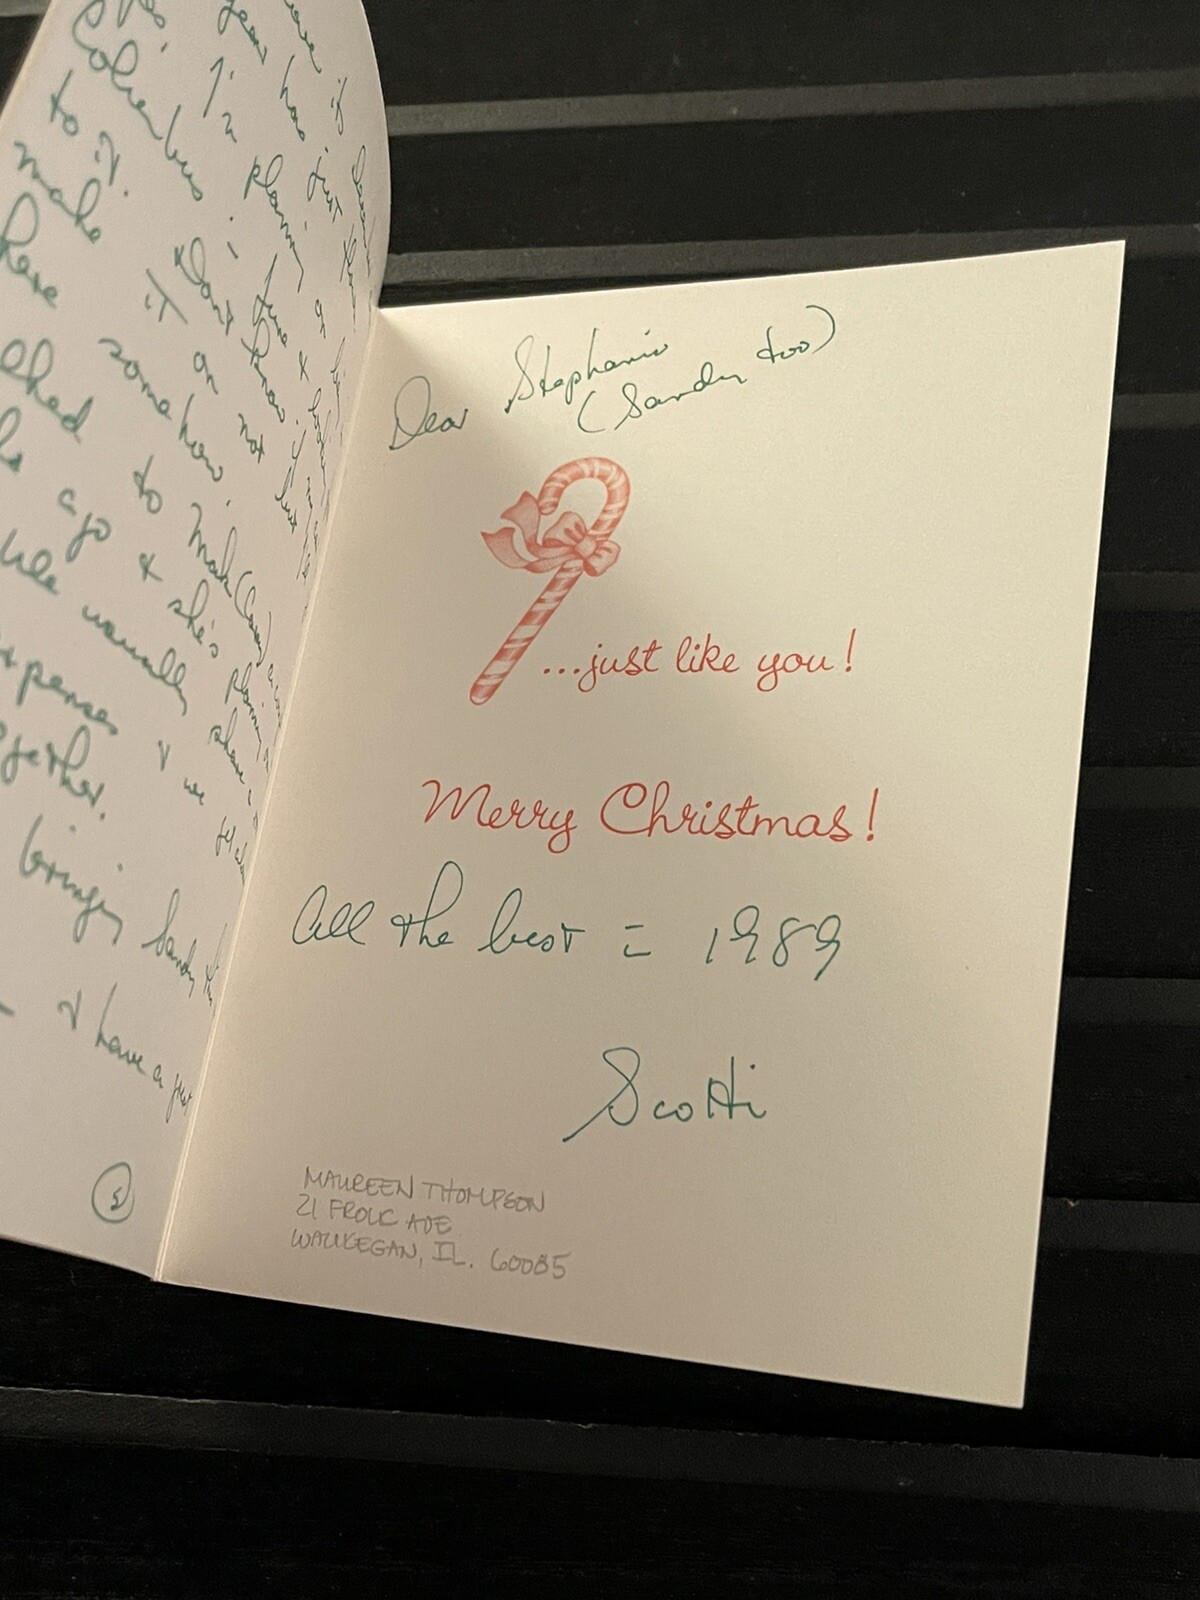 have it
year has just
I'm planning
Columbus - June &
to it. Don't know if
make it or not but
here somehow.
to Mark
ago & she's planning
usually share
expenses & we
together.
bringing Sandy
& have a
Dear Stephanie
(Sandy too)
...just like you!
Merry Christmas!
All the best = 1989
Scotti
MAUREEN THOMPSON
21 FROLIC AVE
WAUKEGAN, IL. 60085